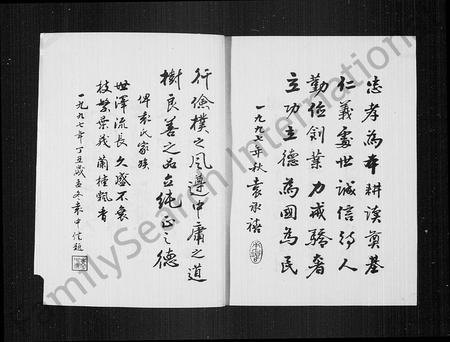 忠孝為本耕讀奠基
仁義處世誠信待人
勤儉創業力戒驕奢
立功立德為國為民
一九九七年秋袁永禧
行儉樸之風遵中庸之道
樹良善之品立純正之德
俾袁氏家族
世澤流長久盛不衰
枝繁葉茂蘭桂飄香
一九九七年丁丑歲孟冬袁中信題
FamilySearch International